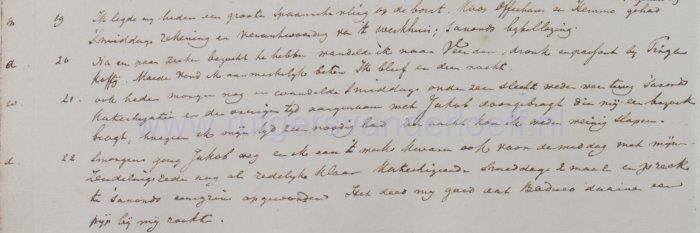 m 19 Ik legde my heden een groote spaansche vlieg op de borst. Was Offerhaus en Hemmo gehad
Smiddags rekening en verantwoording van 't werkhuis; savonds bybellezing.
d. 20 Na een paar zieken bezocht te hebben wandelde ik naar Veendam, dronk en passant by
koffij. Moeder vond ik aanmerkelijk beter. Ik bleef er den nacht.
w. 21. ook heden morgen nog en wandelde Smiddags onder zeer slecht weder weer terug. Savonds
Katechizatie en de overige tijd aangenaam met Jakob doorgebragt die mij een bezoek
bragt, hoezeer ik mijn tyd zeer noodig had. Des nachts kon ik weder weinig slapen.
d. 22 Smorgens ging Jakob weg en ik aan 't werk kwam ook voor de middag met mijn
Zendelingsrede nog al redelijk klaar Katechizeerde Smiddags 2 maal en preekte
's avonds eenigzins opgewonden Het deed my goed dat een
pyp bij mij rookte.
rutgersvanderloeff.nl